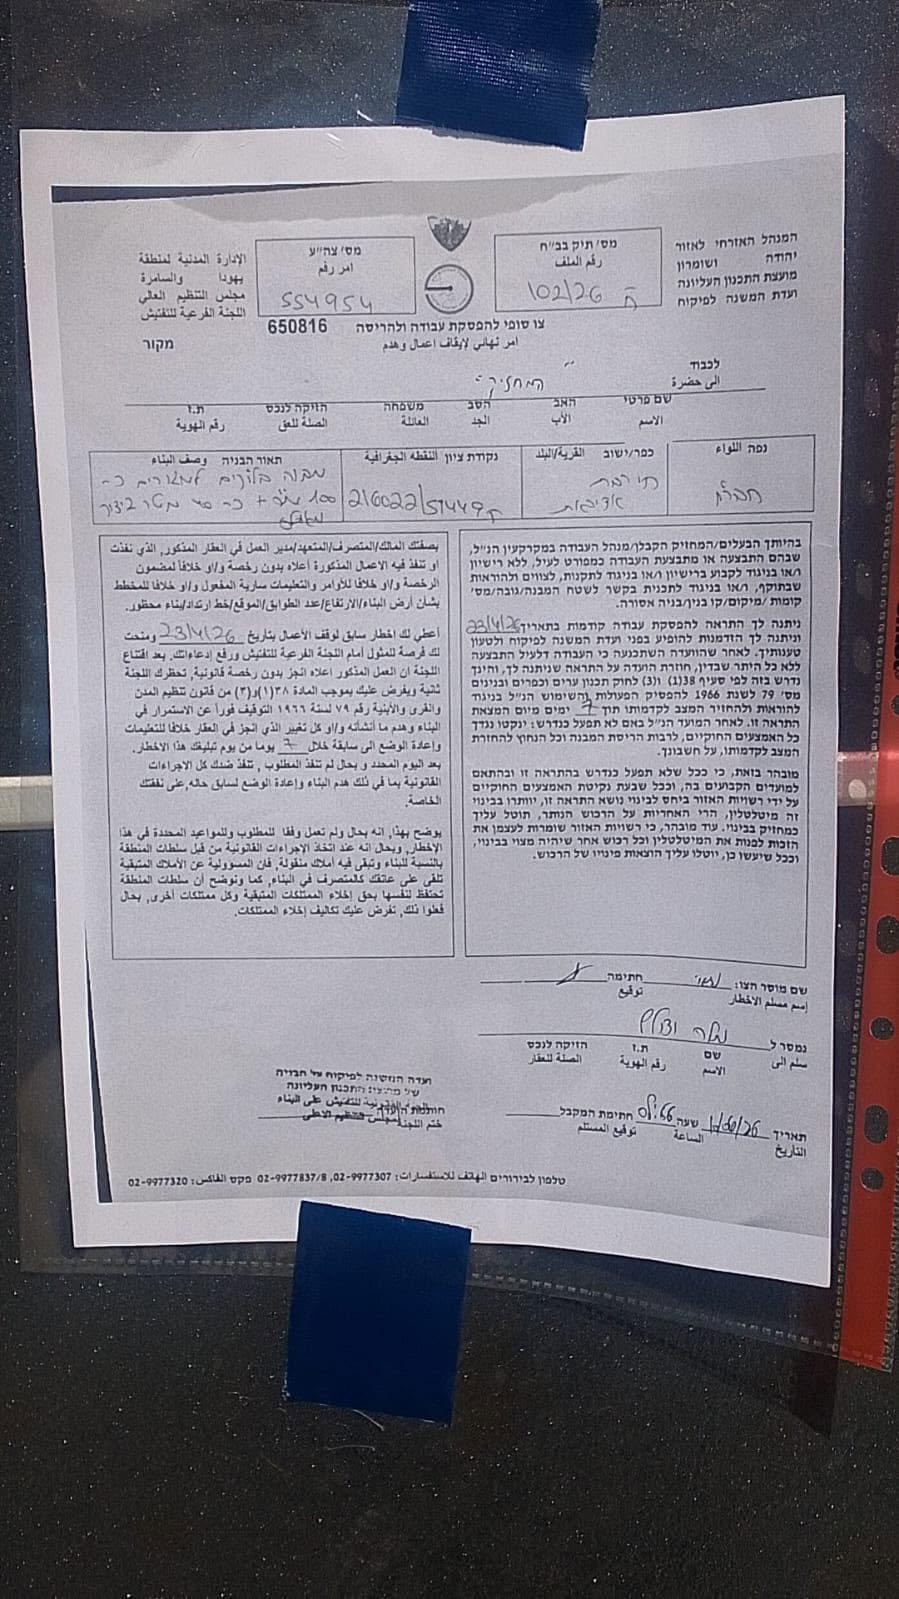 המנהל האזרחי לאזור
יהודה ושומרון
מועצת התכנון העליונה
ועדת המשנה לפיקוח
מס' תיק בב"ח
رقم الملف
ח 102/26
מס' צה"ע
امر رقم
554954
الإدارة المدنية لمنطقة
يهودا والسامرة
مجلس التنظيم العالي
اللجنة الفرعية للتفتيش
צו סופי להפסקת עבודה ולהריסה 650816
امر نهائي لإيقاف اعمال وهدم
מקור
לכבוד
الى حضرة
"המחזיק"
שם פרטי האב הסב משפחה הזיקה לנכס ת.ז
الاسم الأب الجد العائلة الصلة للعق رقم الهوية
נפה اللواء
חברון
כפר/ישוב القرية/البلد
חירבת
נקודת ציון النقطة الجغرافية
תאור הבניה وصف البناء
מבנה בלוקים למגורים כ-
בהיותך הבעלים/המחזיק הקבלן/מנהל העבודה במקרקעין הנ"ל,
שבהם התבצעה או מתבצעת העבודה כמפורט לעיל, ללא רישיון
ו/או בניגוד לקבוע ברישיון ו/או בניגוד לתקנות, לצווים ולהוראות
שבתוקף, ו/או בניגוד לתכנית בקשר לשטח המבנה/גובה/מס'
קומות /מיקום/קו בנין/בניה אסורה.
ניתנה לך התראה להפסקת עבודה קודמות בתאריך 23/4/26
וניתנה לך הזדמנות להופיע בפני ועדת המשנה לפיקוח ולטעון
טענותיך. לאחר שהוועדה השתכנעה כי העבודה דלעיל התבצעה
ללא כל היתר שבדין, חוזרת הועדה על התראה שניתנה לך, והינך
נדרש בזה לפי סעיף 38(1) ו(3) לחוק תכנון ערים וכפרים ובנינים
מס' 79 לשנת 1966 להפסיק הפעולות והשימוש הנ"ל בניגוד
להוראות ולהחזיר המצב לקדמותו תוך 7 ימים מיום המצאת
התראה זו. לאחר המועד הנ"ל באם לא תפעל כנדרש: ינקטו נגדך
כל האמצעים החוקיים, לרבות הריסת המבנה וכל הנחוץ להחזרת
המצב לקדמותו, על חשבונך.
מובהר בזאת, כי ככל שלא תפעל כנדרש בהתראה זו ובהתאם
למועדים הקבועים בה, וככל שבעת נקיטת האמצעים החוקיים
על ידי רשויות האזור ביחס לבינוי נושא התראה זו, יוותרו בבינוי
זה מיטלטלין, הרי האחריות על הרכוש הנותר, תוטל עליך
כמחזיק בבינוי. עוד מובהר, כי רשויות האזור שומרות לעצמן את
הזכות לפנות את המיטלטלין וכל רכוש אחר שיהיה מצוי בבינוי,
וככל שיעשו כן, יוטלו עליך הוצאות פינויו של הרכוש.
بصفتك المالك/المتصرف/المتعهد/مدير العمل في العقار المذكور, الذي نفذت
او تنفذ فيه الاعمال المذكورة أعلاه بدون رخصة و/او خلافا لمضمون
الرخصة و/او خلافا للأوامر والتعليمات سارية المفعول و/او خلافا للمخطط
بشأن أرض البناء/الارتفاع/عدد الطوابق/الموقع/خط ارتداد/بناء محظور.
أعطي لك إخطار سابق لوقف الأعمال بتاريخ 23/4/26 ومنحت
لك فرصة للمثول أمام اللجنة الفرعية للتفتيش ورفع إدعاءاتك. بعد اقتناع
اللجنة ان العمل المذكور اعلاه انجز بدون رخصة قانونية, تحظرك اللجنة
ثانية ويفرض عليك بموجب المادة ٣٨(١)و(٣) من قانون تنظيم المدن
والقرى والأبنية رقم ٧٩ لسنة ١٩٦٦ التوقيف فوراً عن الاستمرار في
البناء وهدم ما أنشأته و/او كل تغيير الذي انجز في العقار خلافا للتعليمات
وإعادة الوضع الى سابقة خلال 7 يوما من يوم تبليغك هذا الاخطار.
بعد اليوم المحدد و بحال لم تنفذ المطلوب , تتخذ ضدك كل الاجراءات
القانونية بما في ذلك هدم البناء وإعادة الوضع لسابق حاله, على نفقتك
الخاصة.
يوضح بهذا, انه بحال ولم تعمل وفقا للمطلوب وللمواعيد المحددة في هذا
الإخطار, وبحال انه عند اتخاذ الإجراءات القانونية من قبل سلطات المنطقة
بالنسبة للبناء وتبقى فيه أملاك منقولة, فان المسؤولية عن الأملاك المتبقية
تلقى على عاتقك كالمتصرف في البناء, كما ونوضح أن سلطات المنطقة
تحتفظ لنفسها بحق إخلاء الممتلكات المتبقية وكل ممتلكات أخرى, بحال
فعلوا ذلك, تفرض عليك تكاليف إخلاء الممتلكات.
שם מוסר הצו: חתימה
إسم مسلم الاخطار توقيع
נמסר ל
سلم الى
שם ת.ז הזיקה לנכס
الاسم رقم الهوية الصلة للعقار
תאריך שעה חתימת המקבל
التاريخ الساعة توقيع المستلم
ועדת המשנה לפיקוח על הבניה
של מועצת התכנון העליונה
חותמת הועדה
ختم اللجنة
טלפון לבירורים الهاتف للاستفسارات: 02-9977307, 02-9977837/8 פקס الفاكس: 02-9977320